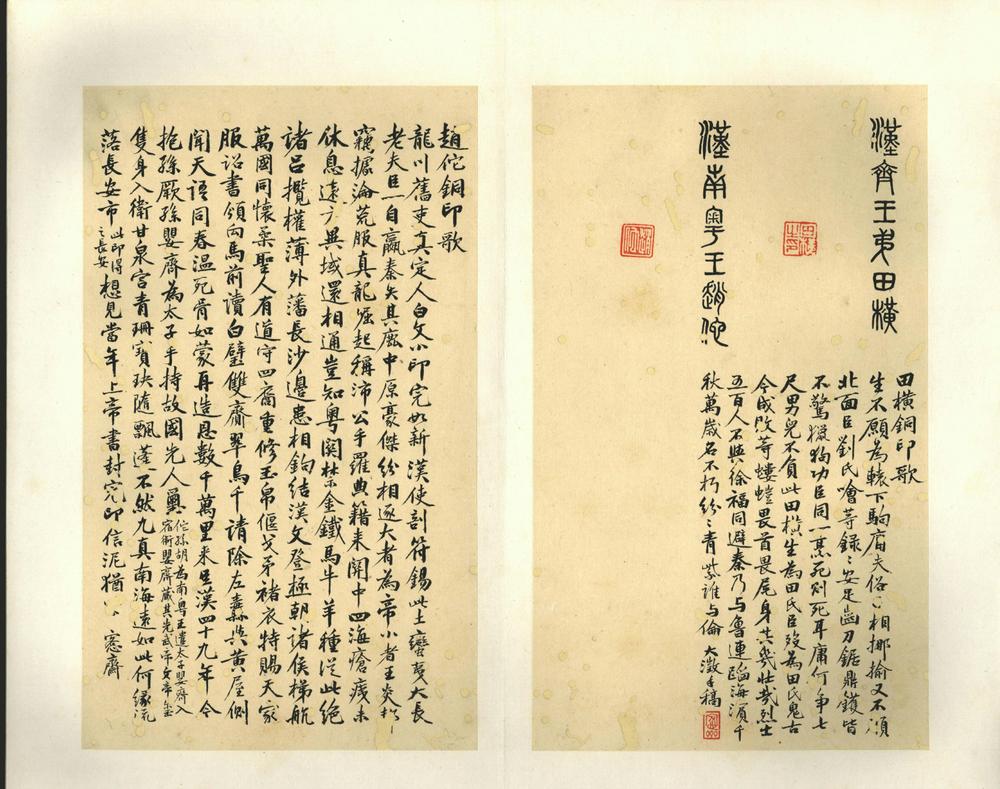 漢齊王弟田橫
漢南粵王趙佗
田橫銅印歌
生不願為轅下駒庸夫俗子相揶揄又不須
北面臣劉氏噲等錄錄安足齒刀鋸鼎鑊皆
不驚掇狗功臣同一烹死則死耳庸何爭七
尺男兒不負此田橫生為田氏臣歿為田氏鬼古
今成敗等螻螘畏首畏尾身其幾壯哉烈士
五百人不與徐福同避秦乃與魯連蹈海濱千
秋萬歲名不朽紛紛青紫誰與倫 大澂手稿
趙佗銅印歌
龍川舊吏真定人白文小印完如新漢使剖符錫此土蠻夷大長
老夫臣一自嬴秦失其鹿中原豪傑紛相逐大者為帝小者王炎炎
竊據淪荒服真龍崛起稱沛公手羅典籍來關中四海瘡痍未
休息遠方異域還相通豈知粵關禁金鐵馬牛羊種從此絕
諸呂攬權薄外藩長沙邊患相鉤結漢文登極朝諸侯梯航
萬國同懷柔聖人有道守四裔重修玉帛偃戈矛褚衣特賜天家
服詔書領向馬前讀白璧雙齎翠鳥千請除左纛與黃屋側
聞天語同春溫死骨如蒙再造恩數千萬里來生漢四十九年今
抱孫厥孫嬰齊為太子手持故國先人璽佗孫胡為南粵王遣太子嬰齊入
宿衛嬰齊藏其先武帝文帝璽
隻身入衛甘泉宮青珊寶玦隨飄蓬不然九真南海遠如此何緣流
落長安市此印得
之長安想見當年上帝書封完印信泥猶 窸齋